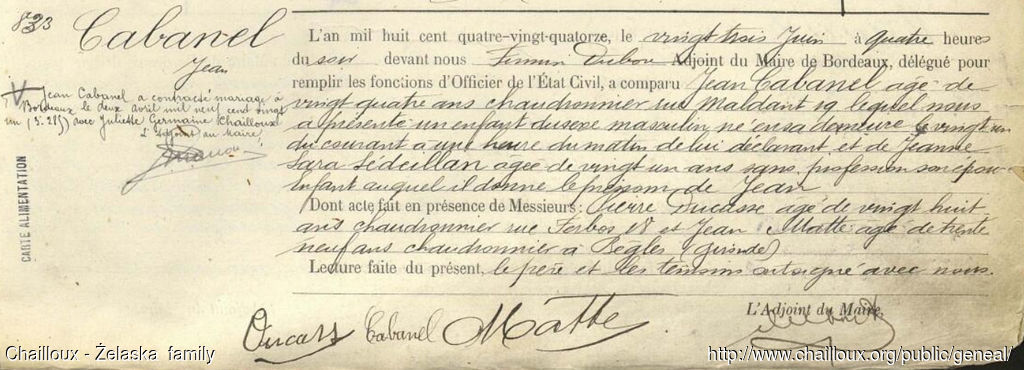 823
Cabanel
Jean
Jean Cabanel a contracté mariage à
Bordeaux le deux avril mil neuf cent vingt
un (S. 28) avec Juliette Germaine Chailloux
L'adjoint au Maire,
CARTE ALIMENTATION
L'an mil huit cent quatre-vingt-quatorze, le vingt trois Juin à quatre heures
du soir devant nous Adjoint du Maire de Bordeaux, délégué pour
remplir les fonctions d'Officier de l'État Civil, a comparu Jean Cabanel âgé de
vingt quatre ans chaudronnier rue Maldant 19 lequel nous
a présenté un enfant du sexe masculin né en sa demeure le vingt un
du courant à une heure du matin de lui déclarant et de Jeanne
Sara Sédeillan âgée de vingt un ans sans profession son épouse
enfant auquel il donne le prénom de Jean
Dont acte fait en présence de Messieurs : Pierre Ducasse âgé de vingt huit
ans chaudronnier rue Forbos 18 et Jean Matte âgé de trente
neuf ans chaudronnier à Bègles (Gironde)
Lecture faite du présent, le père et les témoins ont signé avec nous.
L'Adjoint du Maire,
Ducass Cabanel Matte
Chailloux - Żelaska family
http://www.chailloux.org/public/geneal/